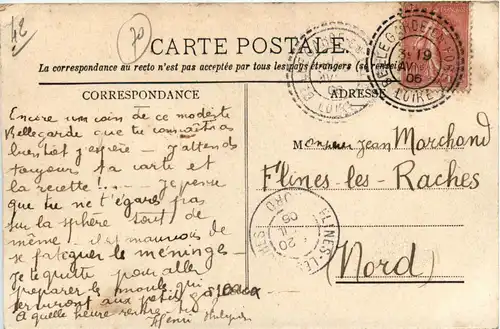 42
70
CARTE POSTALE.
La correspondance au recto n'est pas acceptée par tous les pays étrangers (se renseigner
CORRESPONDANCE
ADRESSE
Encore un coin de ce modeste
Bellegarde que tu connaîtras
bientôt j'espère — J'attends
toujours ta carte et
la recette!... — Je pense
que tu ne t'égares pas
sur la sphère tout de
même — il est mauvais de
se fatiguer le méninges —
Je te quitte pour aller
préparer le moule qui
servira aux petits gateaux
A quelle heure
Henri
Monsieur Jean Marchand
Flines-les-Raches
(Nord)
19
AVRIL
06
LOIRE
FLINES-LES-RACHES
20
06
NORD